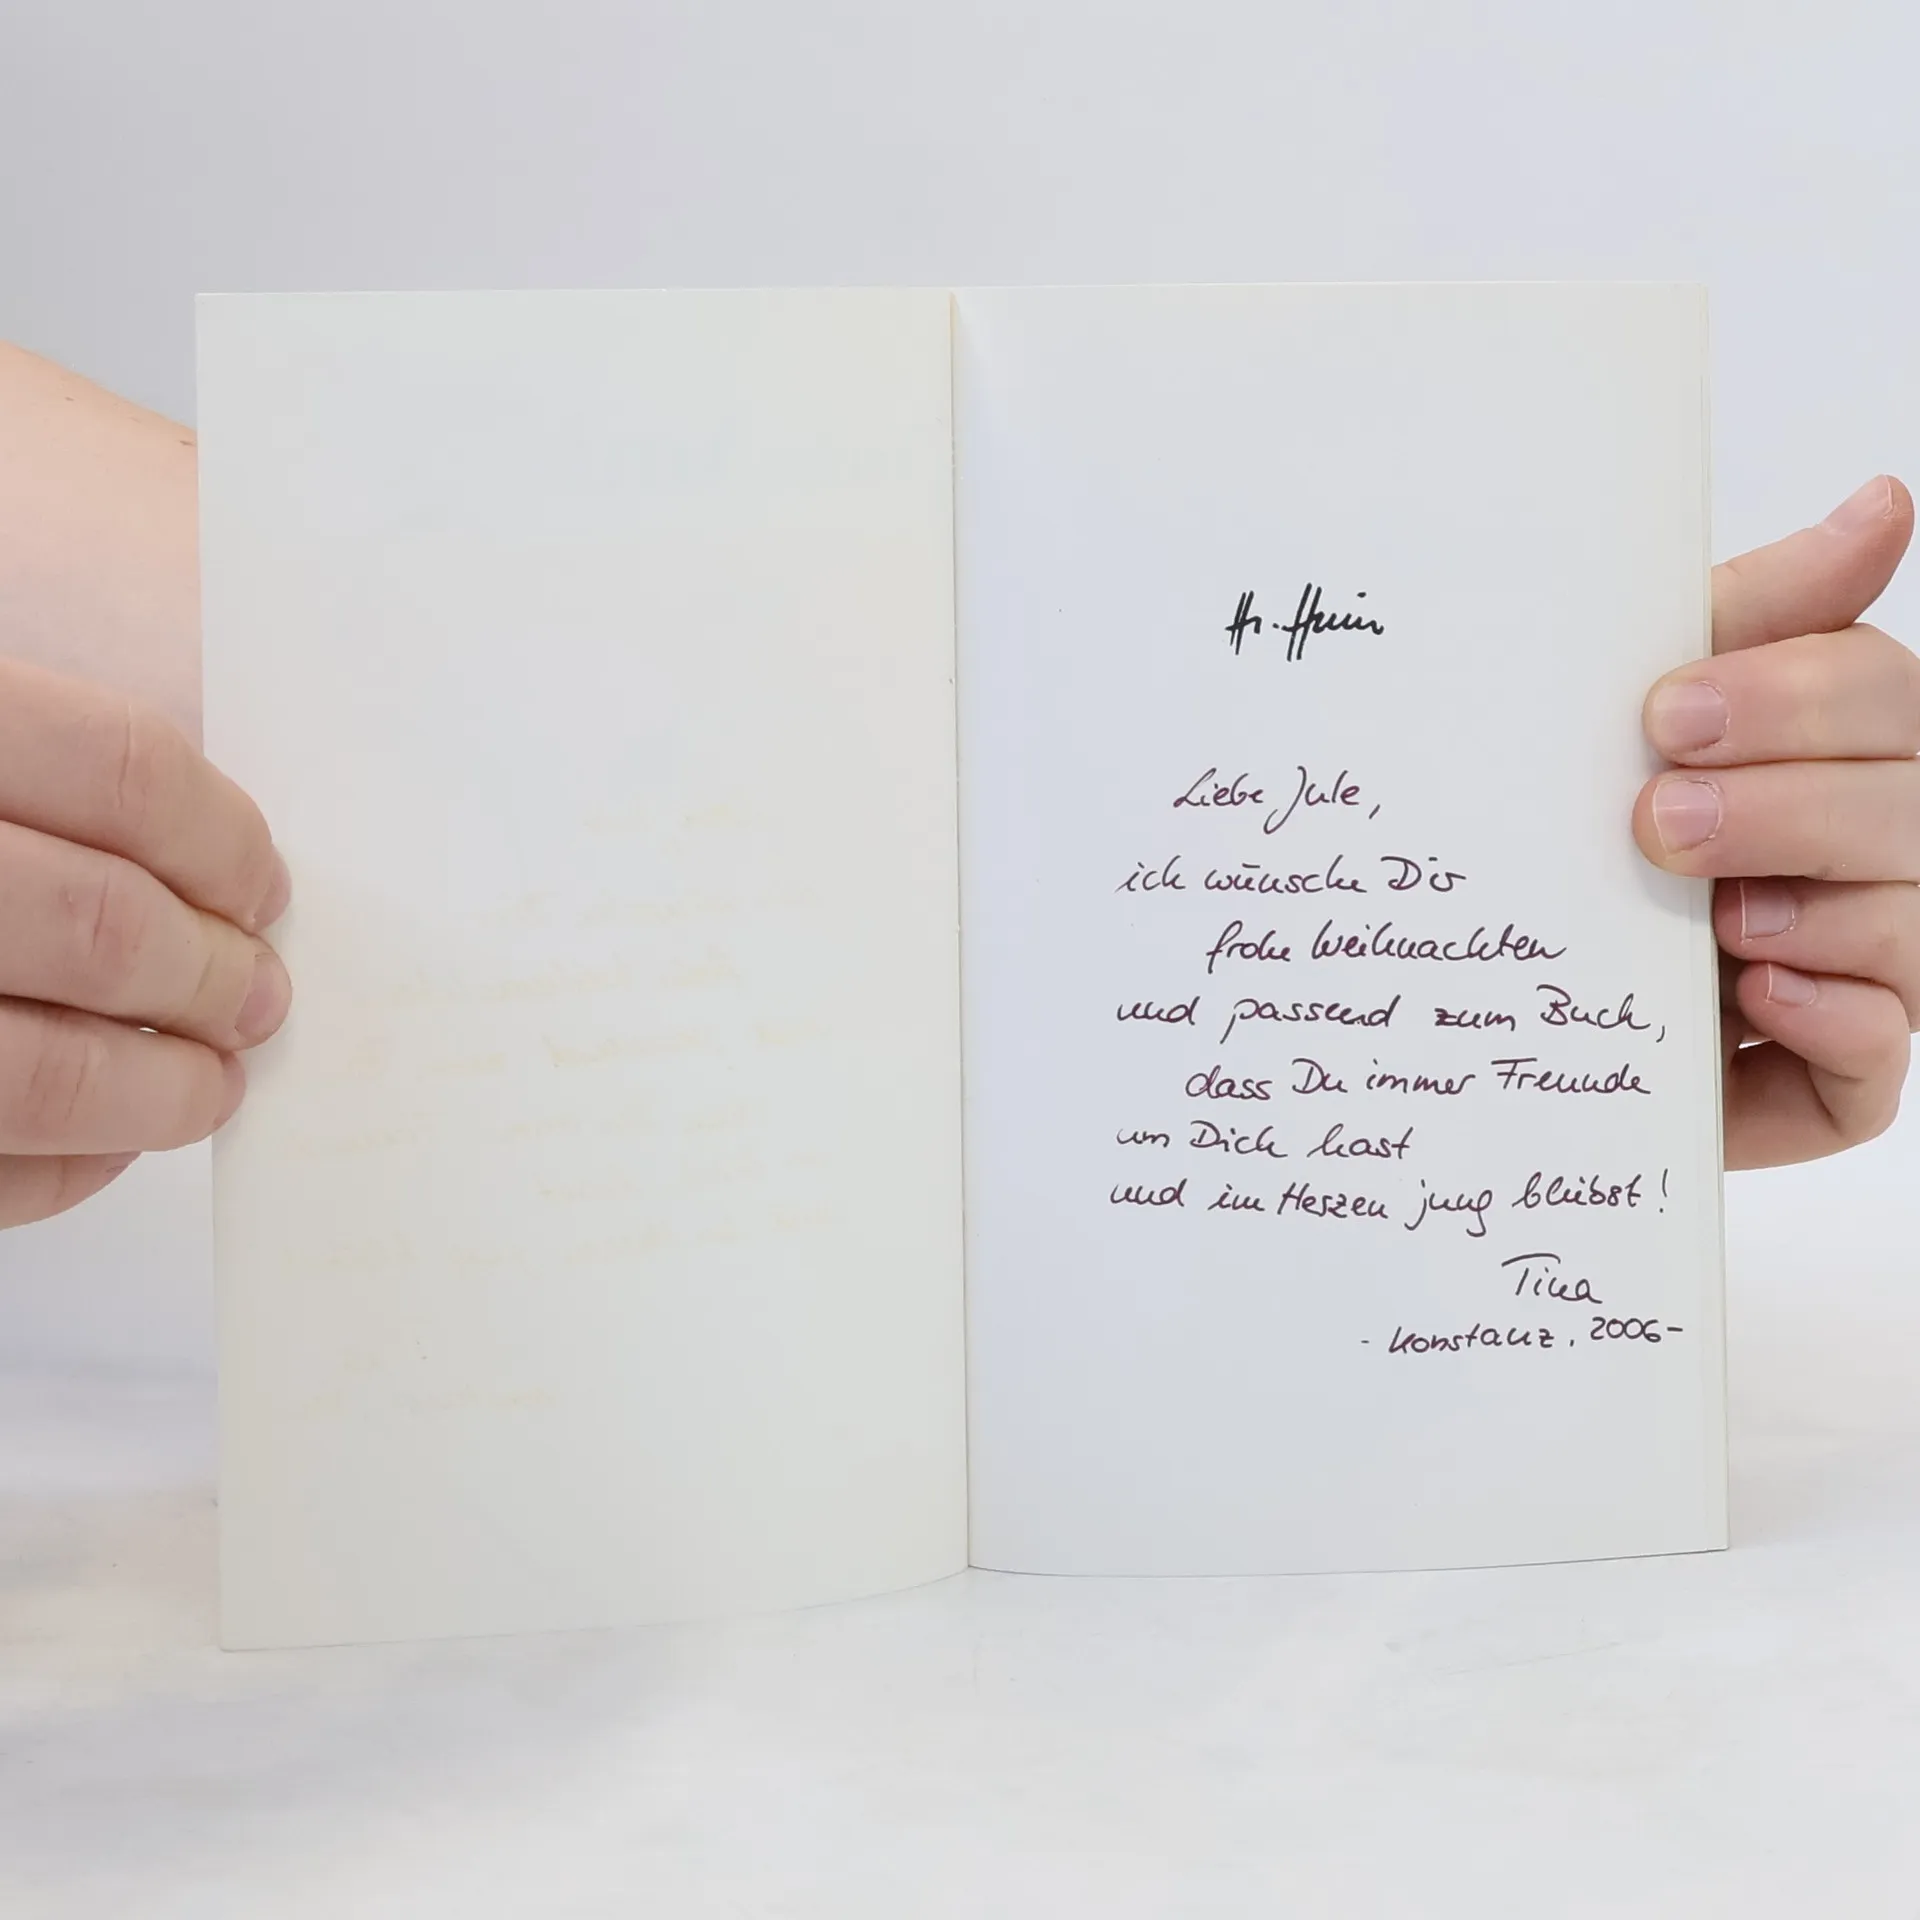 Liebe Jule,
ich wünsche Dir
frohe Weihnachten
und passend zum Buch,
dass Du immer Freunde
um Dich hast
und im Herzen jung bleibst!
Tina
- Konstanz, 2006-